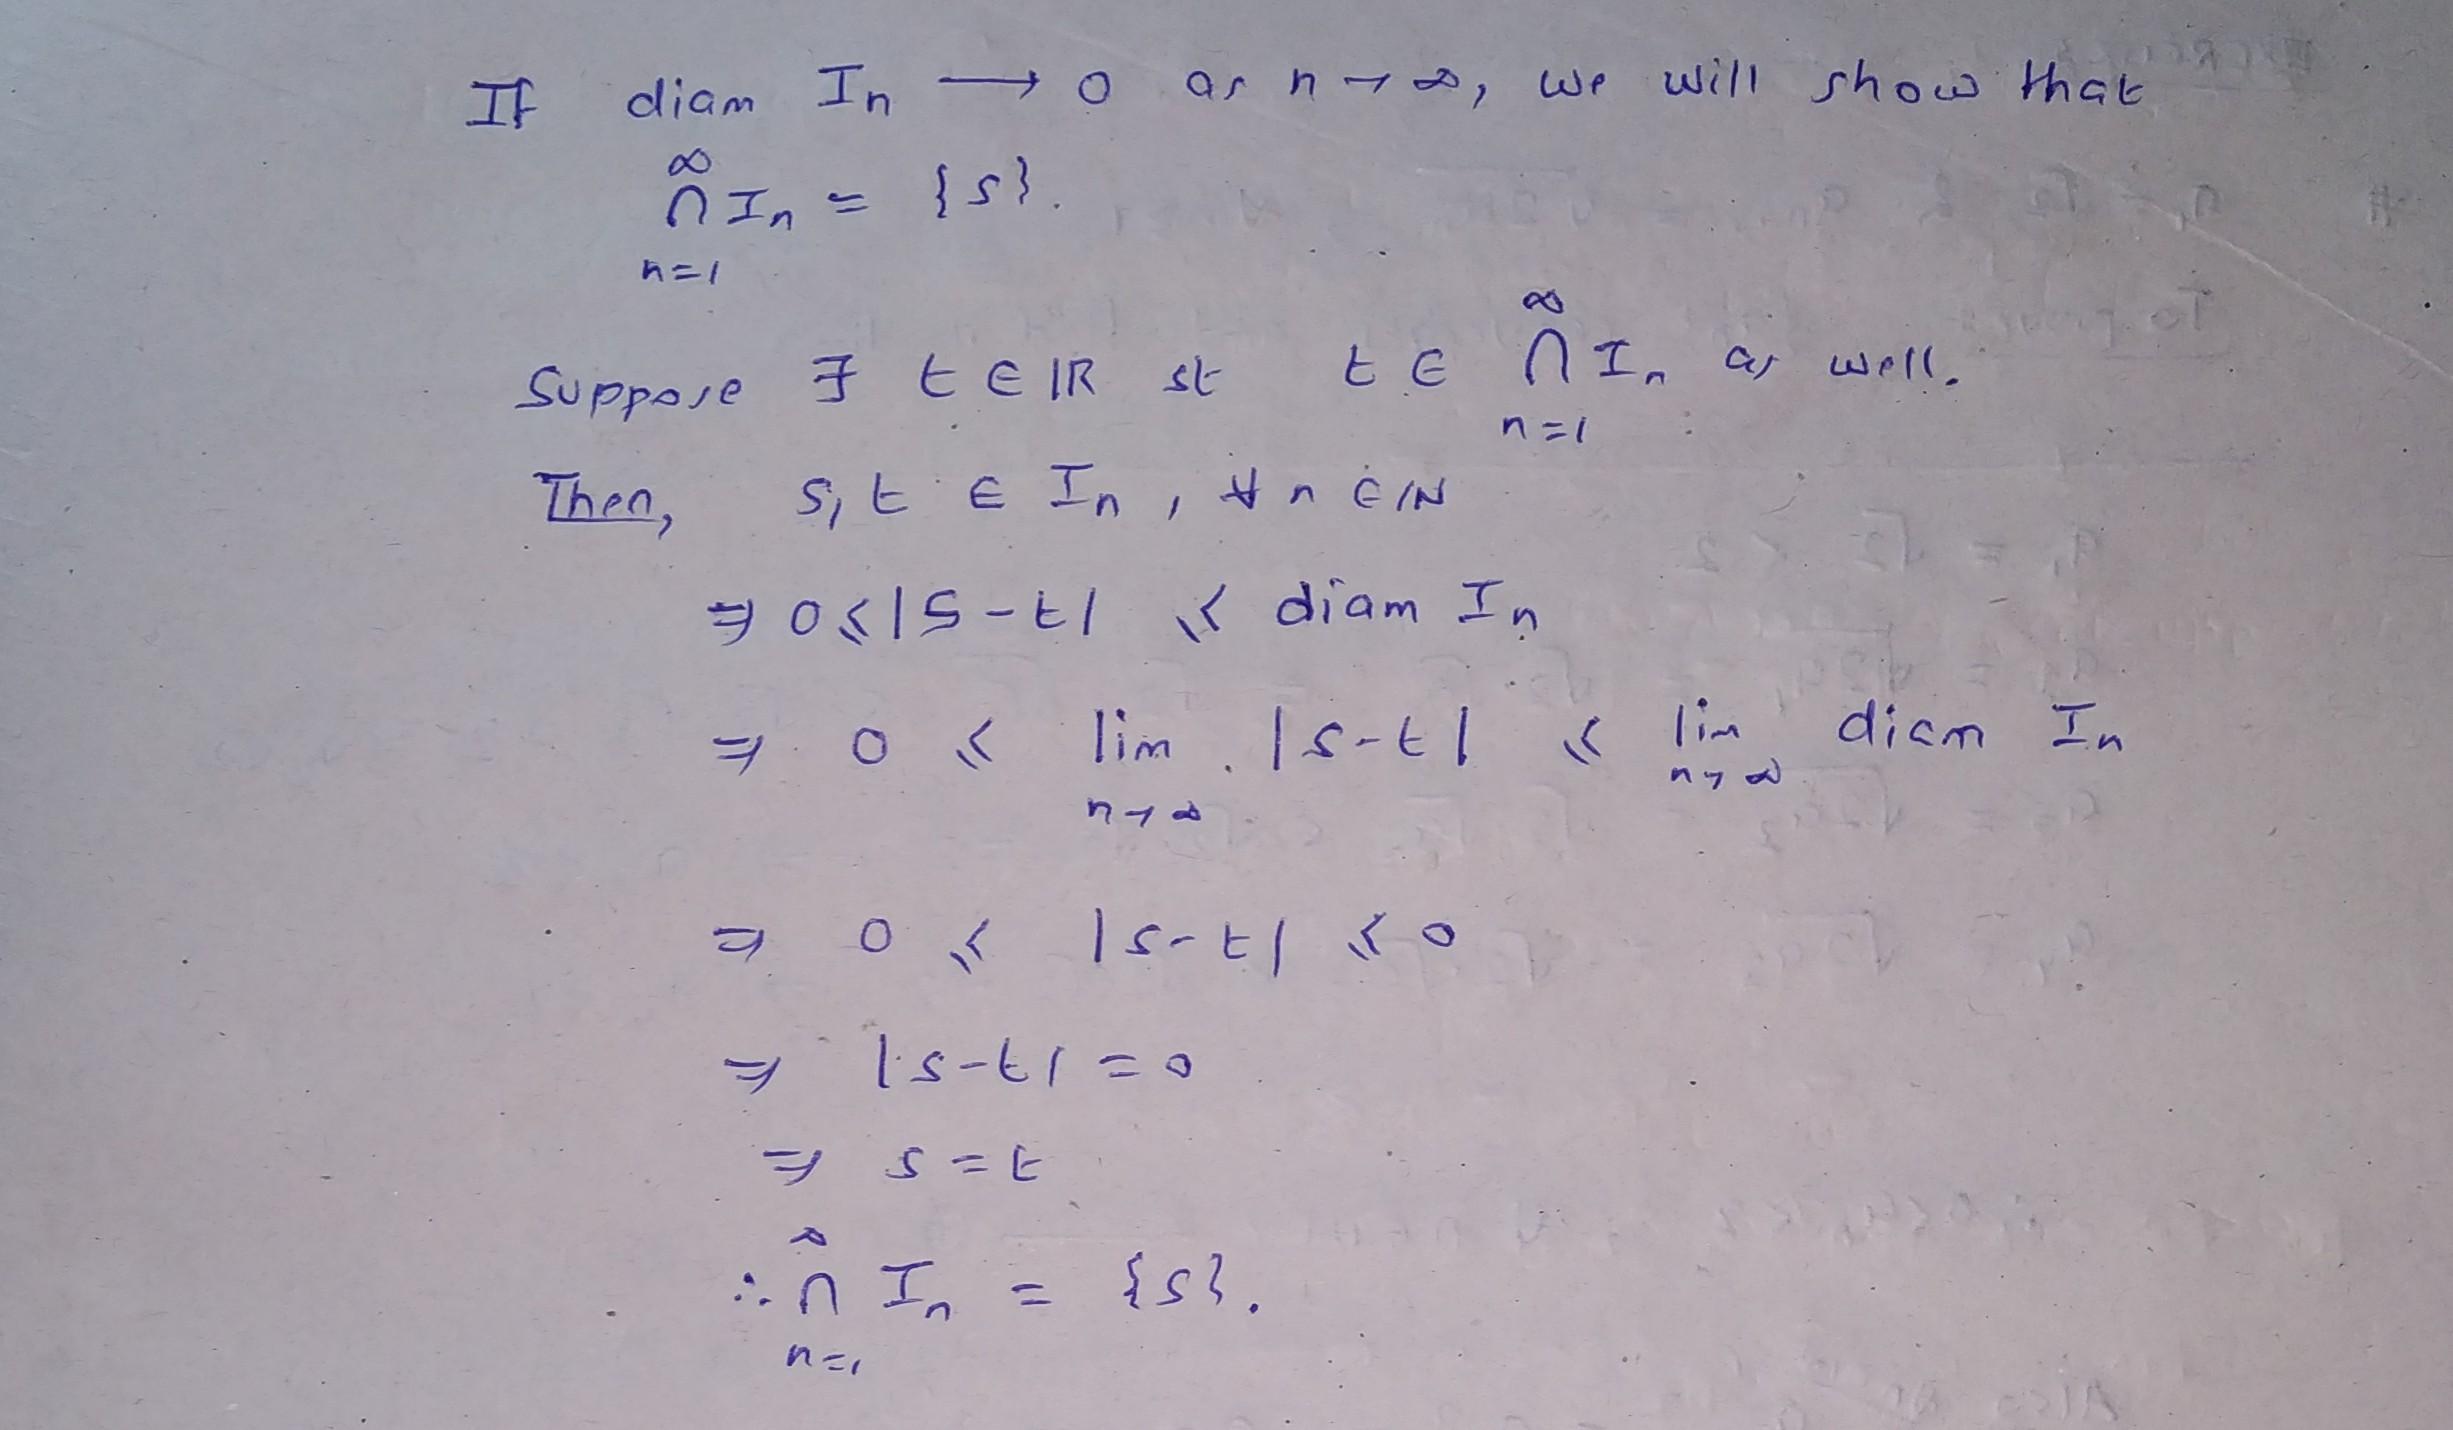 If diam In → 0 as n → ∞, we will show that
∞
∩ In = {s}.
n=1
∞
Suppose ∃ t ∈ IR st t ∈ ∩ In as well.
n=1
Then, s, t ∈ In, ∀ n ∈ IN
⇒ 0 ≤ |s-t| ≤ diam In
⇒ 0 ≤ lim |s-t| ≤ lim diam In
n→∞ n→∞
⇒ 0 ≤ |s-t| ≤ 0
⇒ |s-t| = 0
⇒ s = t
∞
∴ ∩ In = {s}.
n=1